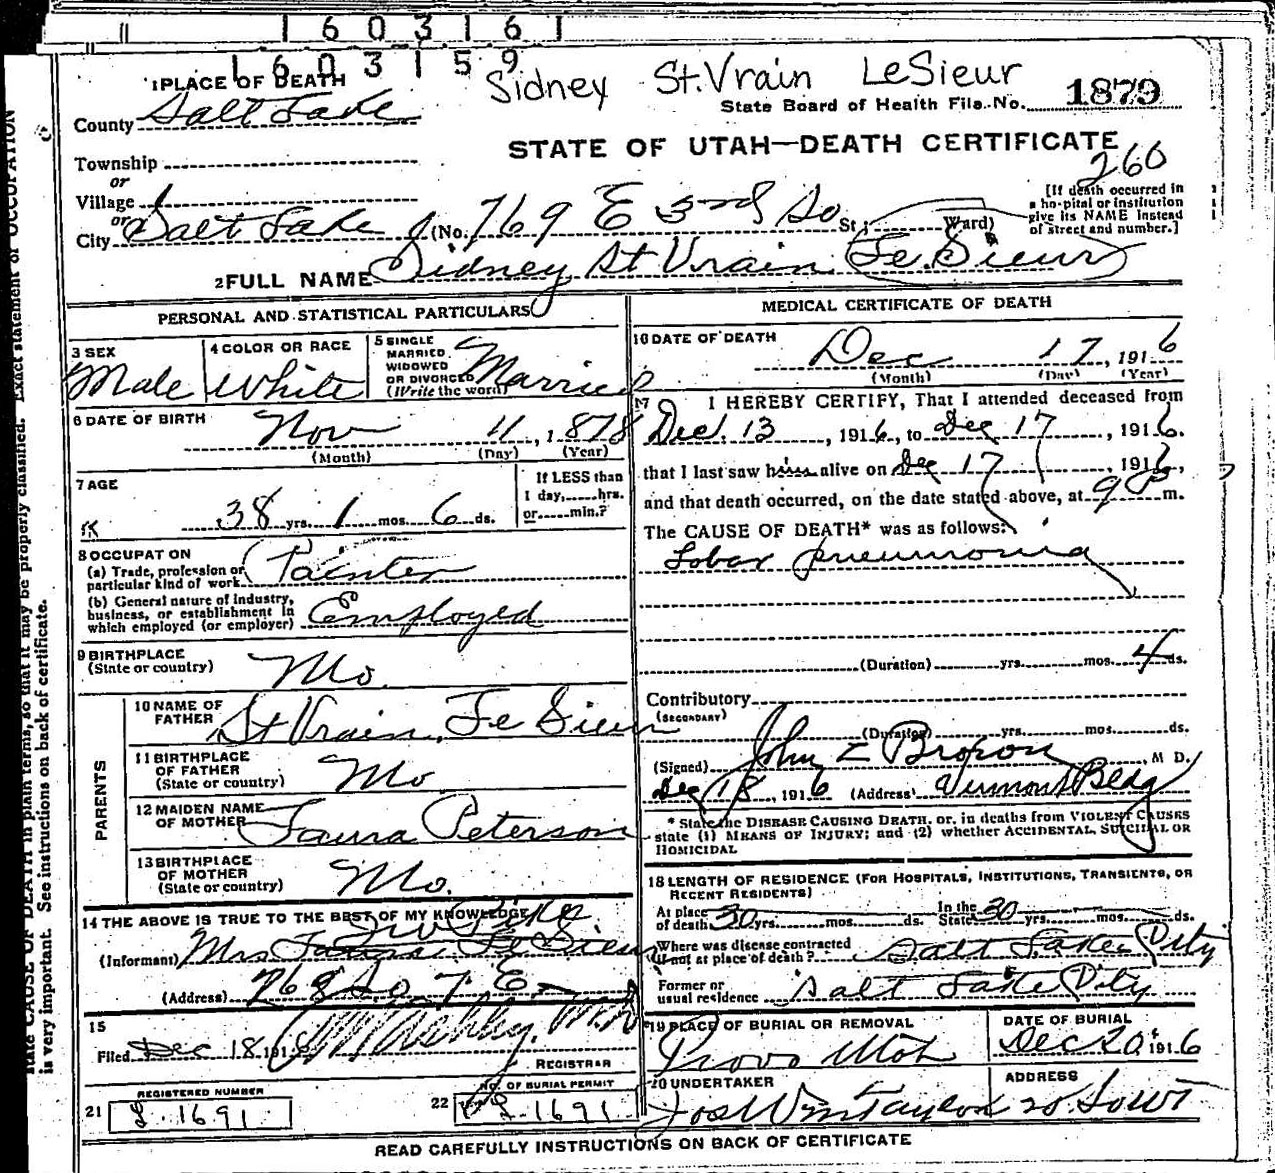 1 6 0 3 1 6 1
1 6 0 3 1 5 9
Sidney St.Vrain LeSieur
1 PLACE OF DEATH
State Board of Health File No. 1879
County Salt Lake
STATE OF UTAH—DEATH CERTIFICATE
260
Township
or
Village
or
City Salt Lake (No. 769 E 3rd So St.; Ward)
[If death occurred in
a hospital or institution
give its NAME instead
of street and number.]
2 FULL NAME Sidney St Vrain Le Sieur
PERSONAL AND STATISTICAL PARTICULARS
3 SEX
Male
4 COLOR OR RACE
White
5 SINGLE
MARRIED
WIDOWED
OR DIVORCED
(Write the word)
Married
6 DATE OF BIRTH
Nov 11, 1878
(Month) (Day) (Year)
7 AGE
38 yrs. 1 mos. 6 ds.
If LESS than
1 day, hrs.
or min.?
8 OCCUPATION
(a) Trade, profession or
particular kind of work Painter
(b) General nature of industry,
business, or establishment in
which employed (or employer) Employed
9 BIRTHPLACE
(State or country) Mo.
PARENTS
10 NAME OF
FATHER St Vrain Le Sieur
11 BIRTHPLACE
OF FATHER
(State or country) Mo
12 MAIDEN NAME
OF MOTHER Laura Peterson
13 BIRTHPLACE
OF MOTHER
(State or country) Mo.
14 THE ABOVE IS TRUE TO THE BEST OF MY KNOWLEDGE
(Informant) Mrs Le Sieur
(Address) 268 So 7 E
15
Filed Dec 18 1916
REGISTRAR
REGISTERED NUMBER
21 1691
NO. OF BURIAL PERMIT
22 1691
MEDICAL CERTIFICATE OF DEATH
16 DATE OF DEATH
Dec 17, 1916
(Month) (Day) (Year)
17 I HEREBY CERTIFY, That I attended deceased from
Dec. 13, 1916, to Dec 17, 1916.
that I last saw him alive on Dec 17, 1916,
and that death occurred, on the date stated above, at 9 P m.
The CAUSE OF DEATH* was as follows:
Lobar pneumonia
(Duration) yrs. mos. 4 ds.
Contributory
(SECONDARY)
(Duration) yrs. mos. ds.
(Signed) John Z Brown, M D.
Dec 18, 1916 (Address) Vermont Bldg
* State the DISEASE CAUSING DEATH, or, in deaths from VIOLENT CAUSES
state (1) MEANS OF INJURY; and (2) whether ACCIDENTAL, SUICIDAL OR
HOMICIDAL
18 LENGTH OF RESIDENCE (FOR HOSPITALS, INSTITUTIONS, TRANSIENTS, OR
RECENT RESIDENTS)
At place
of death 30 yrs. mos. ds.
In the
State 30 yrs. mos. ds.
Where was disease contracted
if not at place of death? Salt Lake City
Former or
usual residence Salt Lake City
19 PLACE OF BURIAL OR REMOVAL
Provo Utah
DATE OF BURIAL
Dec 20 1916
20 UNDERTAKER
Jos Wm Taylor
ADDRESS
READ CAREFULLY INSTRUCTIONS ON BACK OF CERTIFICATE
state CAUSE OF DEATH in plain terms, so that it may be properly classified. Exact statement of OCCUPATION
is very important. See instructions on back of certificate.